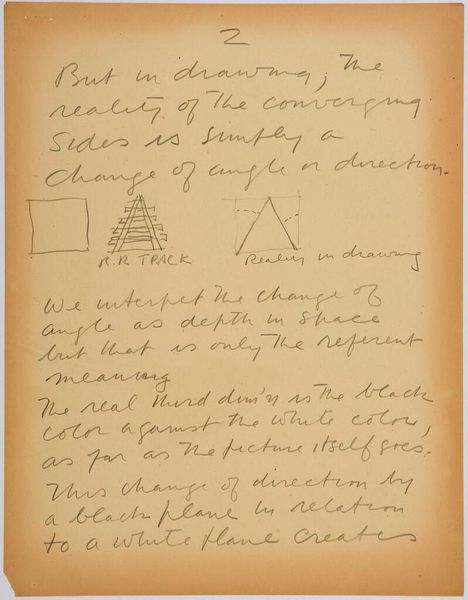 2
But in drawing, the
reality of the converging
sides is simply a
change of angle or direction.
R.R TRACK
Reality in drawing
We interpet the change of
angle as depth in space
but that is only the referent
meaning
The real third dim'n is the black
color against the white color,
as far as the picture itself goes.
This change of direction by
a black plane in relation
to a white plane creates